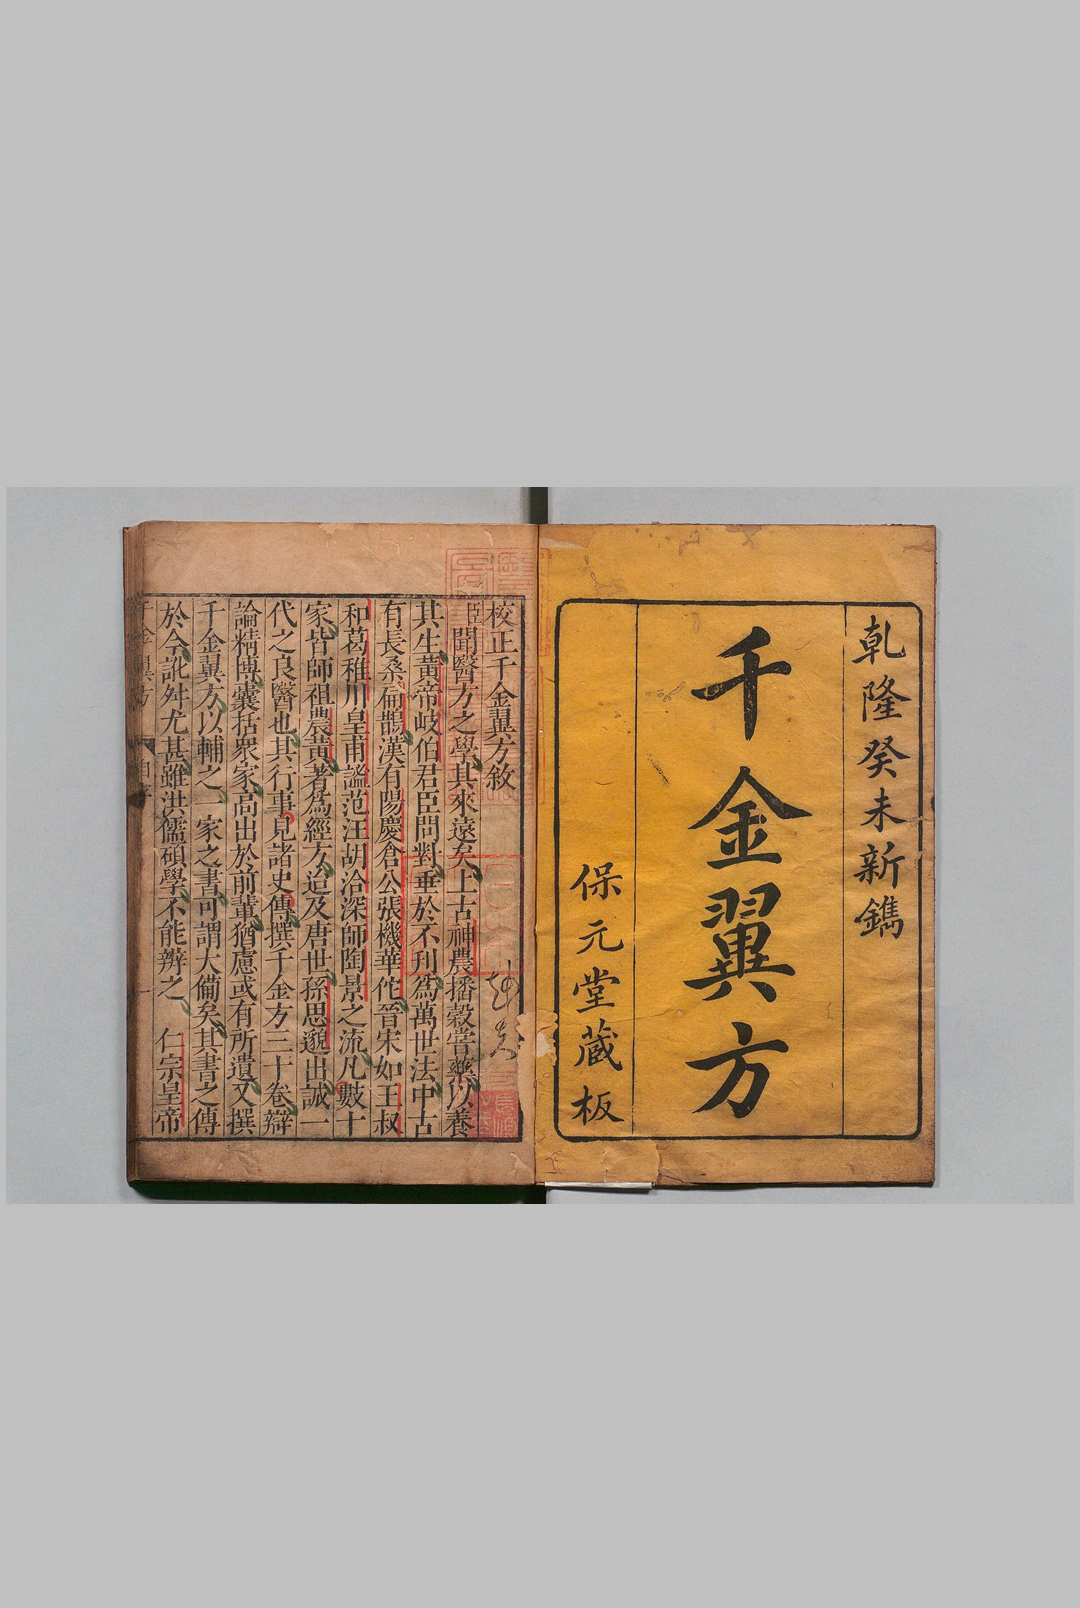 乾隆癸未新鐫
千金翼方
保元堂藏板
校正千金翼方敘
臣聞醫方之學其來遠矣上古神農播穀嘗藥以養
其生黃帝岐伯君臣問對垂於不刋為萬世法中古
有長桑扁鵲漢有陽慶倉公張機華佗晉宋如王叔
和葛稚川皇甫謐范汪胡洽深師陶景之流凡數十
家皆師祖農黃著為經方迨及唐世孫思邈出誠一
代之良醫也其行事見諸史傳撰千金方三十卷辯
論精博囊括衆家高出於前輩猶慮或有所遺又撰
千金翼方以輔之一家之書可謂大備矣其書之傳
於今訛舛尤甚雖洪儒碩學不能辨之 仁宗皇帝
千金翼方